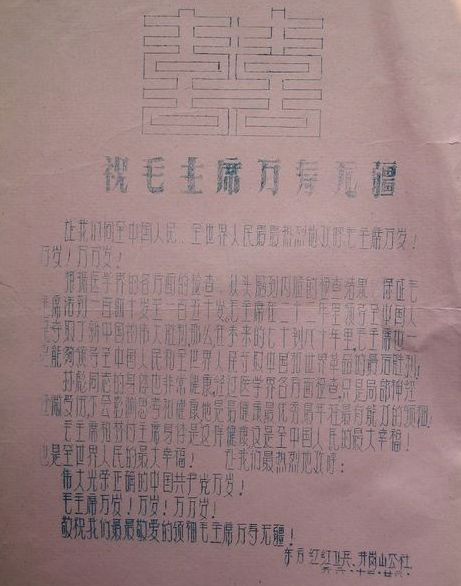 囍
祝毛主席万寿无疆
让我们向全中国人民、全世界人民最最热烈地欢呼毛主席万岁!
万岁!万万岁!
根据医学界的各方面的检查,从头颅到内脏的检查结果,保证毛
主席活到一百四十岁至一百五十岁,毛主席在二十二年里领导全中国人
民夺取了新中国的伟大胜利,那么在未来的七十到八十年里,毛主席一
定能够领导全中国人民和全世界人民夺取中国和世界革命的最后胜利。
林彪同志的身体也非常健康,经过医学界各方面检查,只是局部神经
健康
毛主席和林付主席身体是这样健康,这是全中国人民的最大幸福!
也是全世界人民的最大幸福! 让我们最热烈地欢呼:
伟大光荣正确的中国共产党万岁!
毛主席万岁!万岁!万万岁!
敬祝我们最最敬爱的领袖毛主席万寿无疆!
东方红红卫兵、井岗山公社